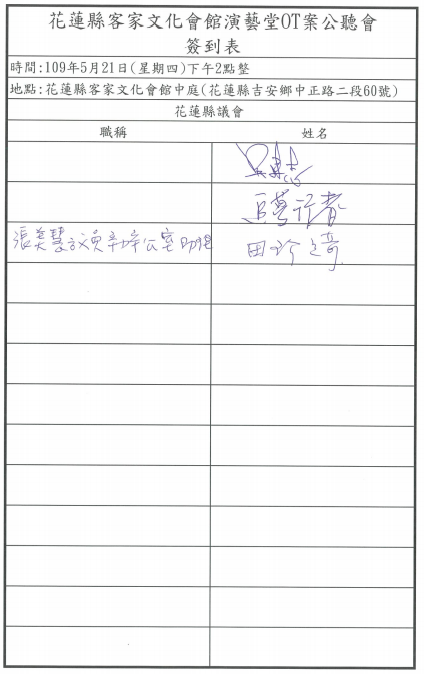 花蓮縣客家文化會館演藝堂OT案公聽會
簽到表
時間:109年5月21日(星期四)下午2點整
地點:花蓮縣客家文化會館中庭(花蓮縣吉安鄉中正路二段60號)
花蓮縣議會
職稱 姓名
張美慧議員辦公室助理 田